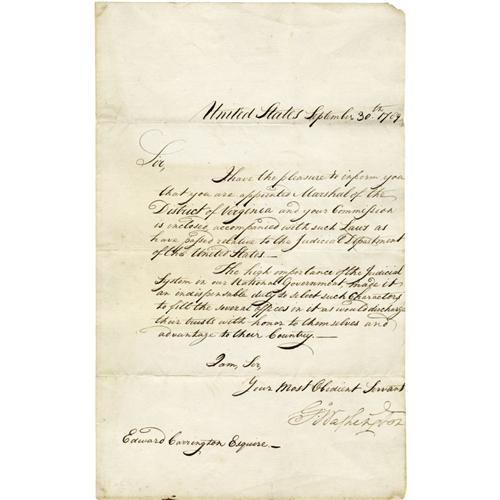 United States September 30th 1789
Sir,
I have the pleasure to inform you
that you are appointed Marshal of the
District of Virginia and your Commission
is inclosed accompanied with such Laws as
have passed relative to the Judicial Department
of the United States.—
The high importance of the Judicial
System in our National Government made it
an indispensable duty to select such Characters
to fill the several offices in it as would discharge
their trusts with honor to themselves and
advantage to their Country.—
I am, Sir,
Your Most Obedient Servant
G. Washington
Edward Carrington Esquire.—